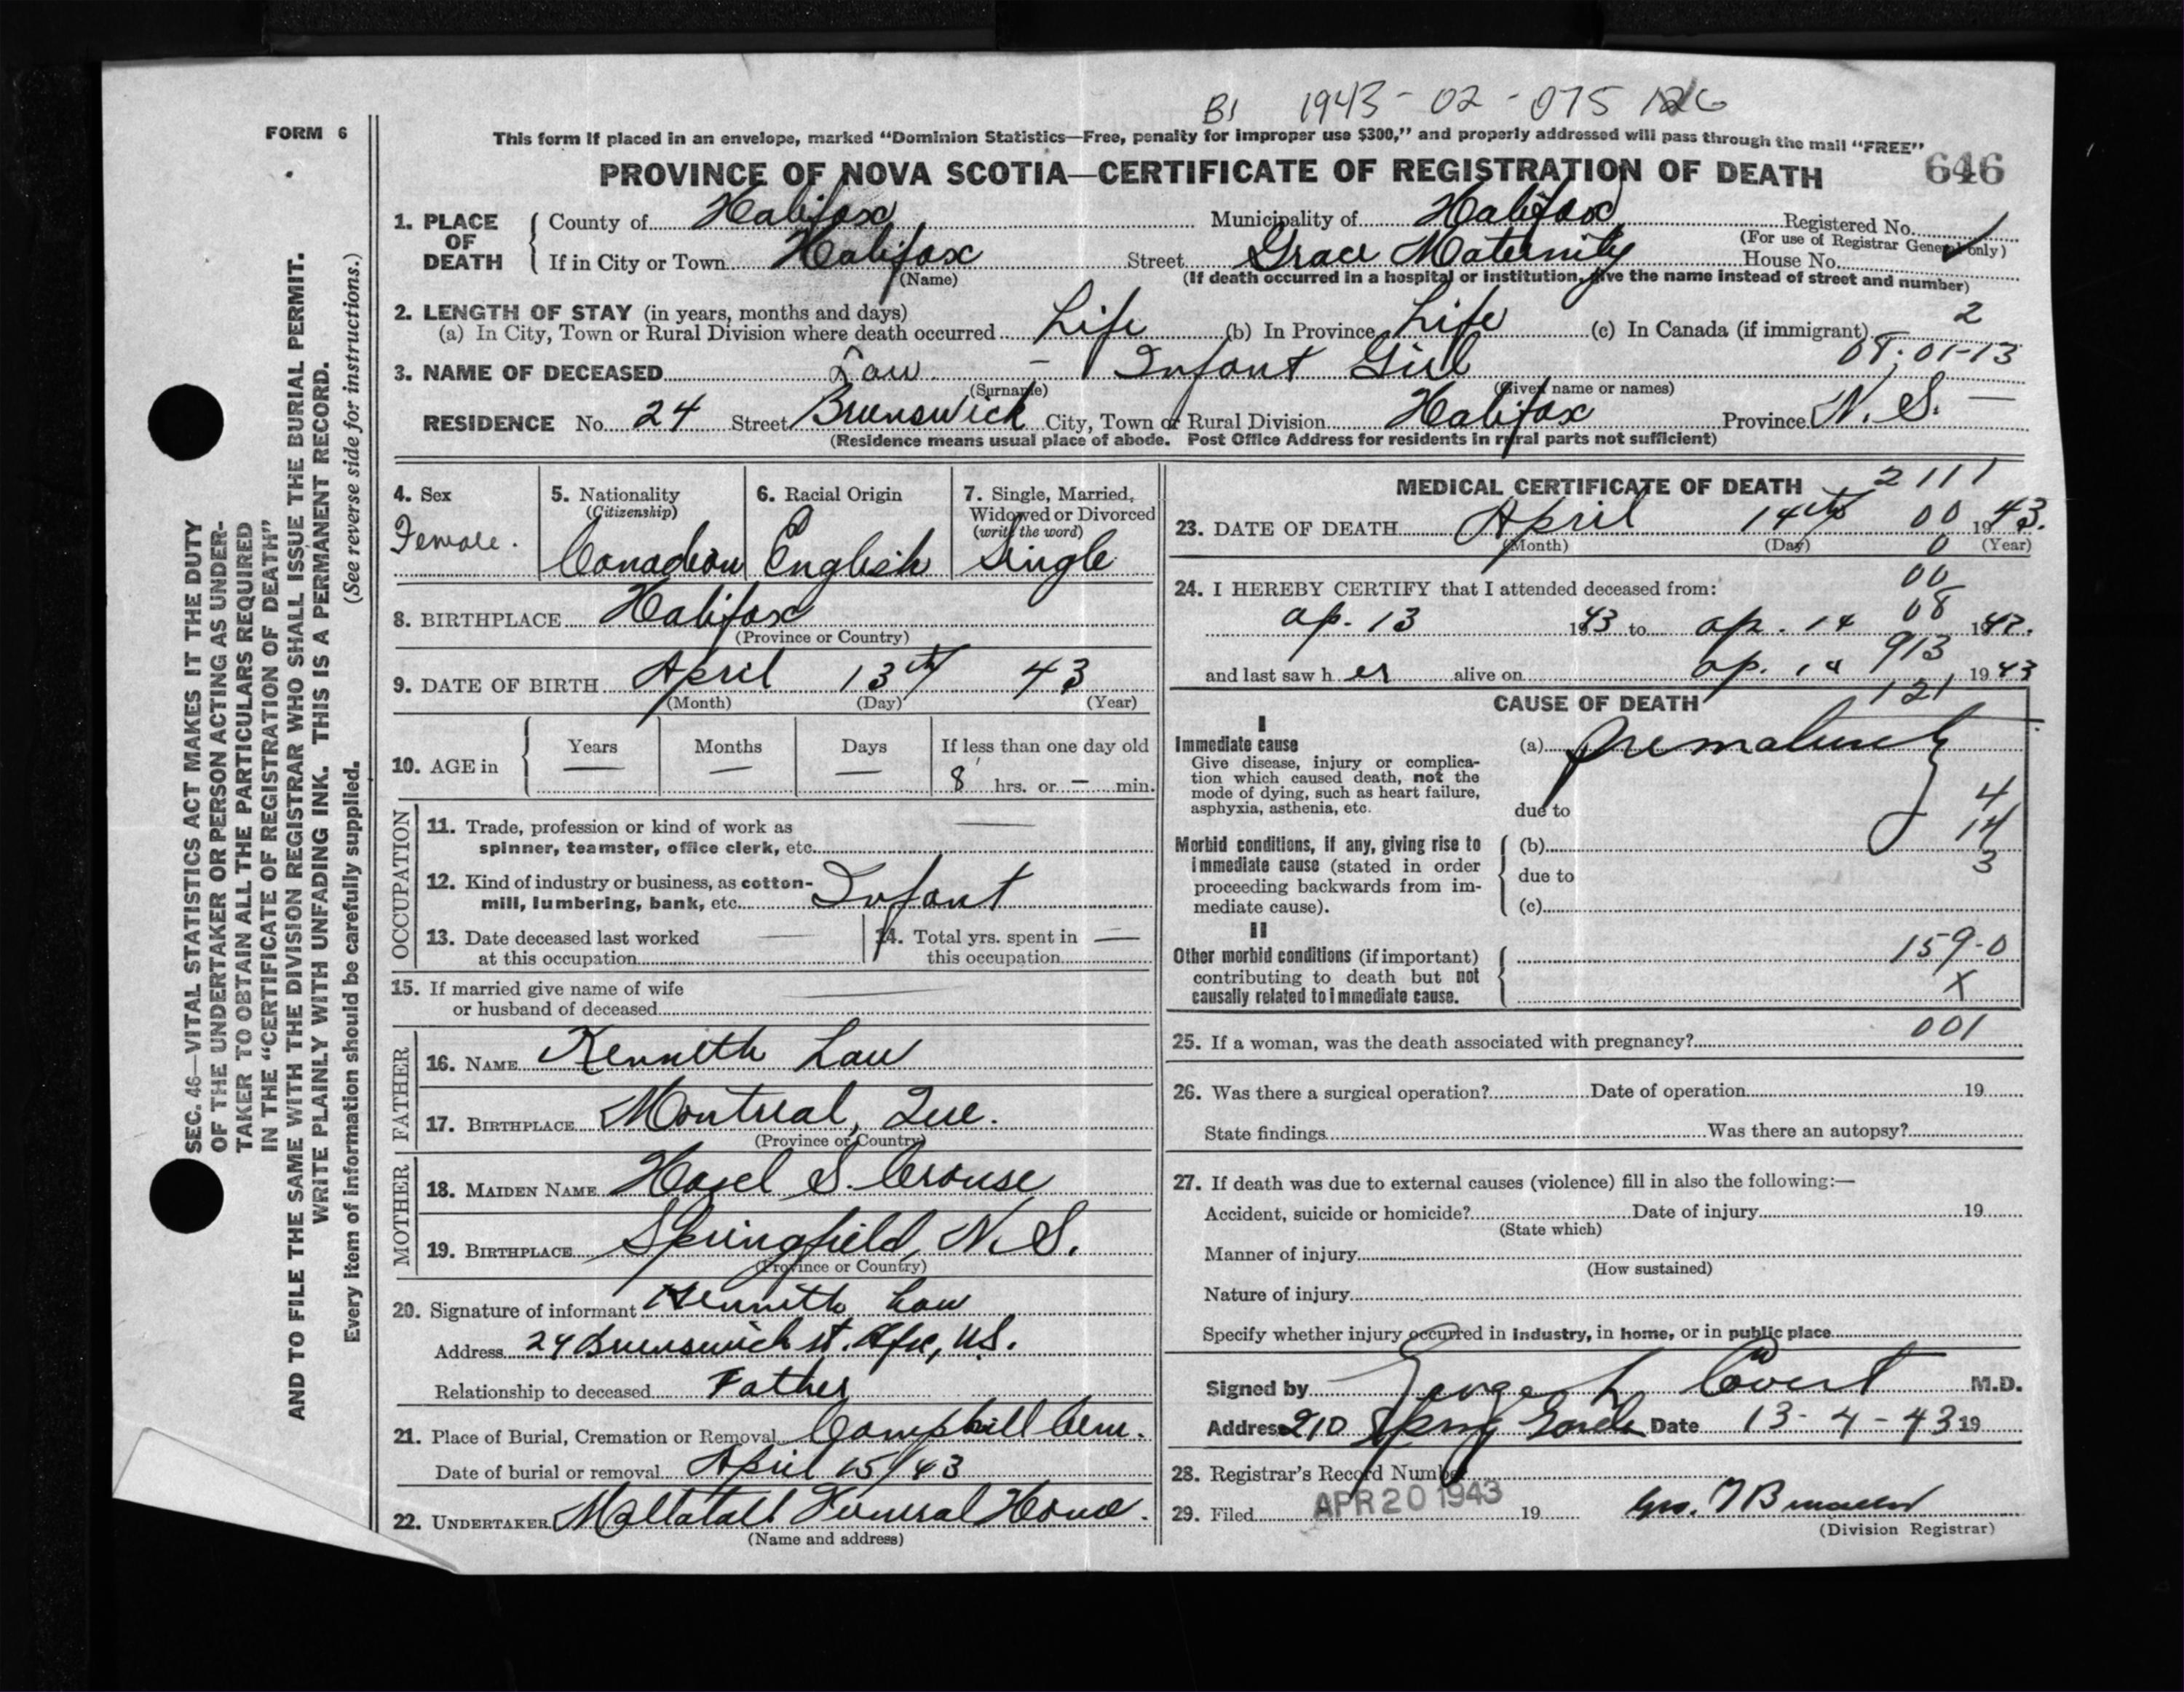 B1 1943-02-075126
FORM 6
This form if placed in an envelope, marked "Dominion Statistics—Free, penalty for improper use $300," and properly addressed will pass through the mail "FREE"
PROVINCE OF NOVA SCOTIA—CERTIFICATE OF REGISTRATION OF DEATH 646
1. PLACE OF DEATH
County of Halifax Municipality of Halifax Registered No.
(For use of Registrar General only)
If in City or Town Halifax Street Grace Maternity House No.
(Name) (If death occurred in a hospital or institution, give the name instead of street and number)
2. LENGTH OF STAY (in years, months and days)
(a) In City, Town or Rural Division where death occurred Life (b) In Province Life (c) In Canada (if immigrant) 2
08-01-13
3. NAME OF DECEASED Law - Infant Girl
(Surname) (Given name or names)
RESIDENCE No. 24 Street Brunswick City, Town or Rural Division Halifax Province N.S. —
(Residence means usual place of abode. Post Office Address for residents in rural parts not sufficient)
SEC. 46—VITAL STATISTICS ACT MAKES IT THE DUTY
OF THE UNDERTAKER OR PERSON ACTING AS UNDER-
TAKER TO OBTAIN ALL THE PARTICULARS REQUIRED
IN THE "CERTIFICATE OF REGISTRATION OF DEATH"
AND TO FILE THE SAME WITH THE DIVISION REGISTRAR WHO SHALL ISSUE THE BURIAL PERMIT.
WRITE PLAINLY WITH UNFADING INK. THIS IS A PERMANENT RECORD.
Every item of information should be carefully supplied. (See reverse side for instructions.)
4. Sex
Female.
5. Nationality
(Citizenship)
Canadian
6. Racial Origin
English
7. Single, Married,
Widowed or Divorced
(write the word)
Single
8. BIRTHPLACE Halifax
(Province or Country)
9. DATE OF BIRTH April 13th 43
(Month) (Day) (Year)
10. AGE in
Years Months Days If less than one day old
— — — 8 hrs. or — min.
OCCUPATION
11. Trade, profession or kind of work as
spinner, teamster, office clerk, etc. —
12. Kind of industry or business, as cotton-
mill, lumbering, bank, etc. Infant
13. Date deceased last worked —
at this occupation
14. Total yrs. spent in —
this occupation
15. If married give name of wife
or husband of deceased —
FATHER
16. NAME Kenneth Law
17. BIRTHPLACE Montreal, Que.
(Province or Country)
MOTHER
18. MAIDEN NAME Hazel S. Crouse
19. BIRTHPLACE Springfield, N.S.
(Province or Country)
20. Signature of informant Kenneth Law
Address 24 Brunswick st. Hfx, N.S.
Relationship to deceased Father
21. Place of Burial, Cremation or Removal Camphill Cem.
Date of burial or removal April 15/43
22. UNDERTAKER Mattatall Funeral Home.
(Name and address)
MEDICAL CERTIFICATE OF DEATH 2111
23. DATE OF DEATH April 14th 00 1943.
(Month) (Day) 0 (Year)
24. I HEREBY CERTIFY that I attended deceased from: 00
08
ap. 13 1943 to ap. 14 19
913
and last saw her alive on ap. 14 1943
121
CAUSE OF DEATH
I
Immediate cause
Give disease, injury or complica-
tion which caused death, not the
mode of dying, such as heart failure,
asphyxia, asthenia, etc.
(a) Prematurity
due to
4
14
3
Morbid conditions, if any, giving rise to
immediate cause (stated in order
proceeding backwards from im-
mediate cause).
(b)
due to
(c)
II
Other morbid conditions (if important)
contributing to death but not
causally related to immediate cause.
159-0
X
001
25. If a woman, was the death associated with pregnancy?
26. Was there a surgical operation? Date of operation 19
State findings Was there an autopsy?
27. If death was due to external causes (violence) fill in also the following:—
Accident, suicide or homicide? Date of injury 19
(State which)
Manner of injury
(How sustained)
Nature of injury
Specify whether injury occurred in industry, in home, or in public place
Signed by George L Covert M.D.
Address 210 Spring Garden Date 13-4-43 19
28. Registrar's Record Number
29. Filed APR 20 1943 19
(Division Registrar)